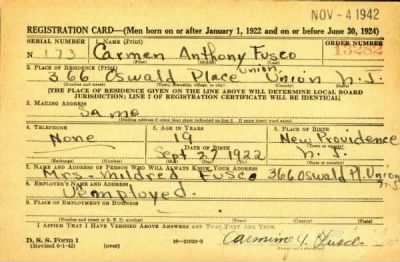 NOV - 4 1942
REGISTRATION CARD—(Men born on or after January 1, 1922 and on or before June 30, 1924)
SERIAL NUMBER 1. NAME (Print) ORDER NUMBER
N 173 Carmen Anthony Fusco 13282
2. PLACE OF RESIDENCE (Print)
366 Oswald Place Union Union N.J.
[THE PLACE OF RESIDENCE GIVEN ON THE LINE ABOVE WILL DETERMINE LOCAL BOARD
JURISDICTION; LINE 2 OF REGISTRATION CERTIFICATE WILL BE IDENTICAL]
3. MAILING ADDRESS
Same
4. TELEPHONE 5. AGE IN YEARS 6. PLACE OF BIRTH
None 19 New Providence
DATE OF BIRTH
Sept 27 1922 N.J.
7. NAME AND ADDRESS OF PERSON WHO WILL ALWAYS KNOW YOUR ADDRESS
Mrs. Mildred Fusco 366 Oswald Pl. Union
8. EMPLOYER'S NAME AND ADDRESS
9. PLACE OF EMPLOYMENT OR BUSINESS
I AFFIRM THAT I HAVE VERIFIED ABOVE ANSWERS AND THAT THEY ARE TRUE.
D. S. S. Form 1
(Revised 6-1-42) (over)